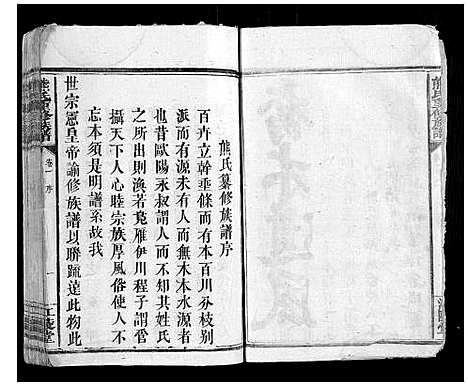 熊氏纂修族譜序
百卉立幹垂條而有本百川分枝別
派而有源未有人而無木本水源者
也昔歐陽永叔謂人而不知其姓氏
之所出則渙若鳧雁伊川程子謂管
攝天下人心睦宗族厚風俗使人不
忘本須是明譜系故我
世宗憲皇帝諭修族譜以聯疏遠此物此
熊氏重修族譜
卷一 序
一
江陵堂
熊氏重修族譜